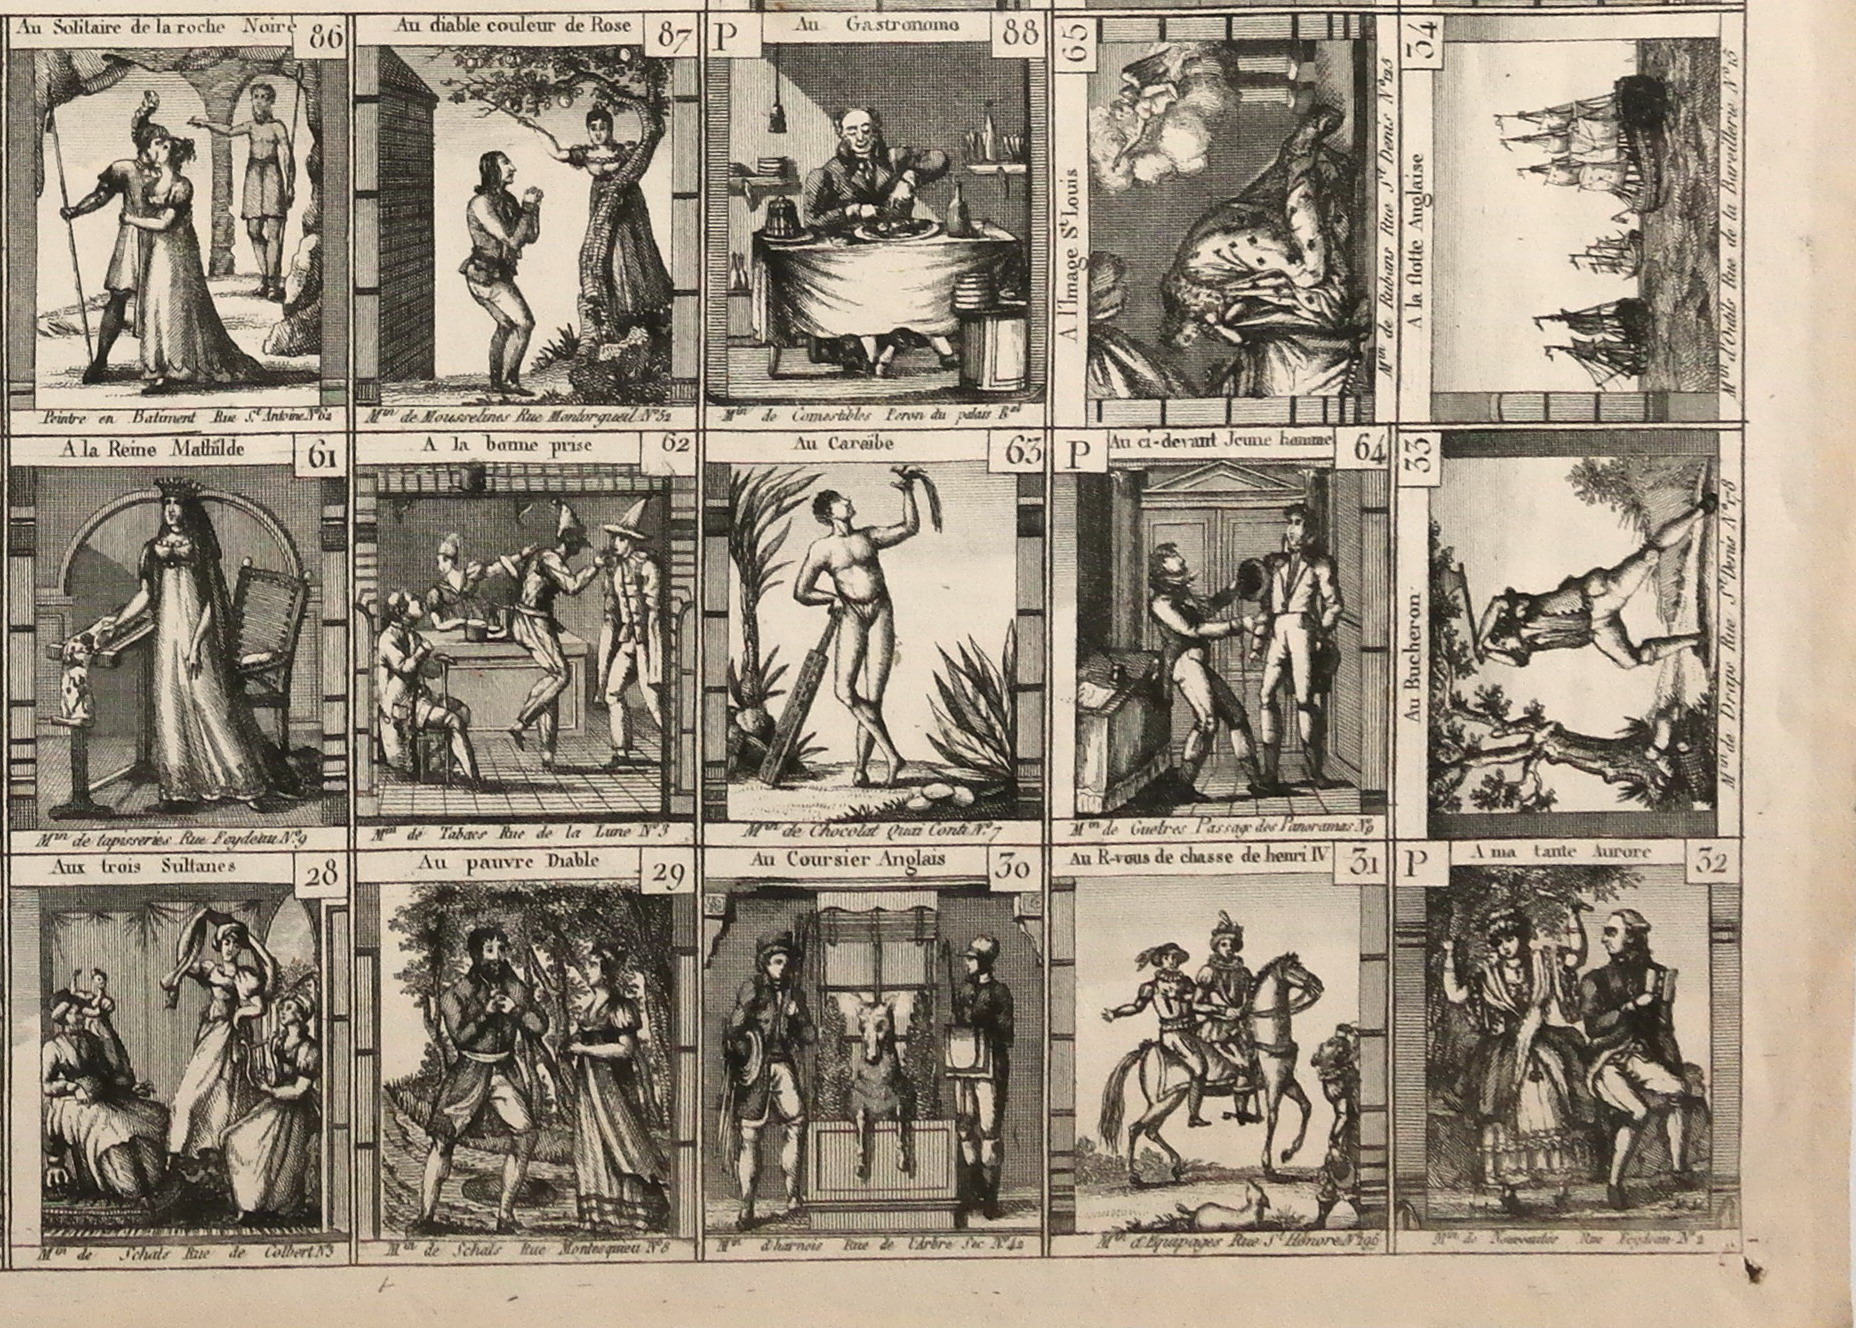 Au Solitaire de la roche Noire
86
Peintre en Batiment Rue St Antoine No 62
Au diable couleur de Rose
87
Min de Mousselines Rue Montorgueil No 52
P
Au Gastronome
88
Min de Comestibles Peron du palais Ral
65
A l'Image St Louis
Min de Rubans Rue St Denis No 125
34
A la flotte Anglaise
Min d'Outils Rue de la Bareillerie No 15
A la Reine Mathilde
61
Min de tapisseries Rue Feydeau No 9
A la bonne prise
62
Min de Tabacs Rue de la Lune No 3
Au Caraïbe
63
Min de Chocolat Quai Conti No 7
P
Au ci-devant Jeune homme
64
Min de Guetres Passage des Panoramas No 9
33
Au Bucheron
Min de Draps Rue St Denis No 178
Aux trois Sultanes
28
Min de Schals Rue de Colbert No 3
Au pauvre Diable
29
Min de Schals Rue Montesquieu No 8
Au Coursier Anglais
30
Min d'harnois Rue de l'Arbre Sec No 42
Au R-vous de chasse de henri IV
31
Min d'Equipages Rue St Honoré No 296
P
A ma tante Aurore
32
Min de Nouveautés Rue Feydeau No 2